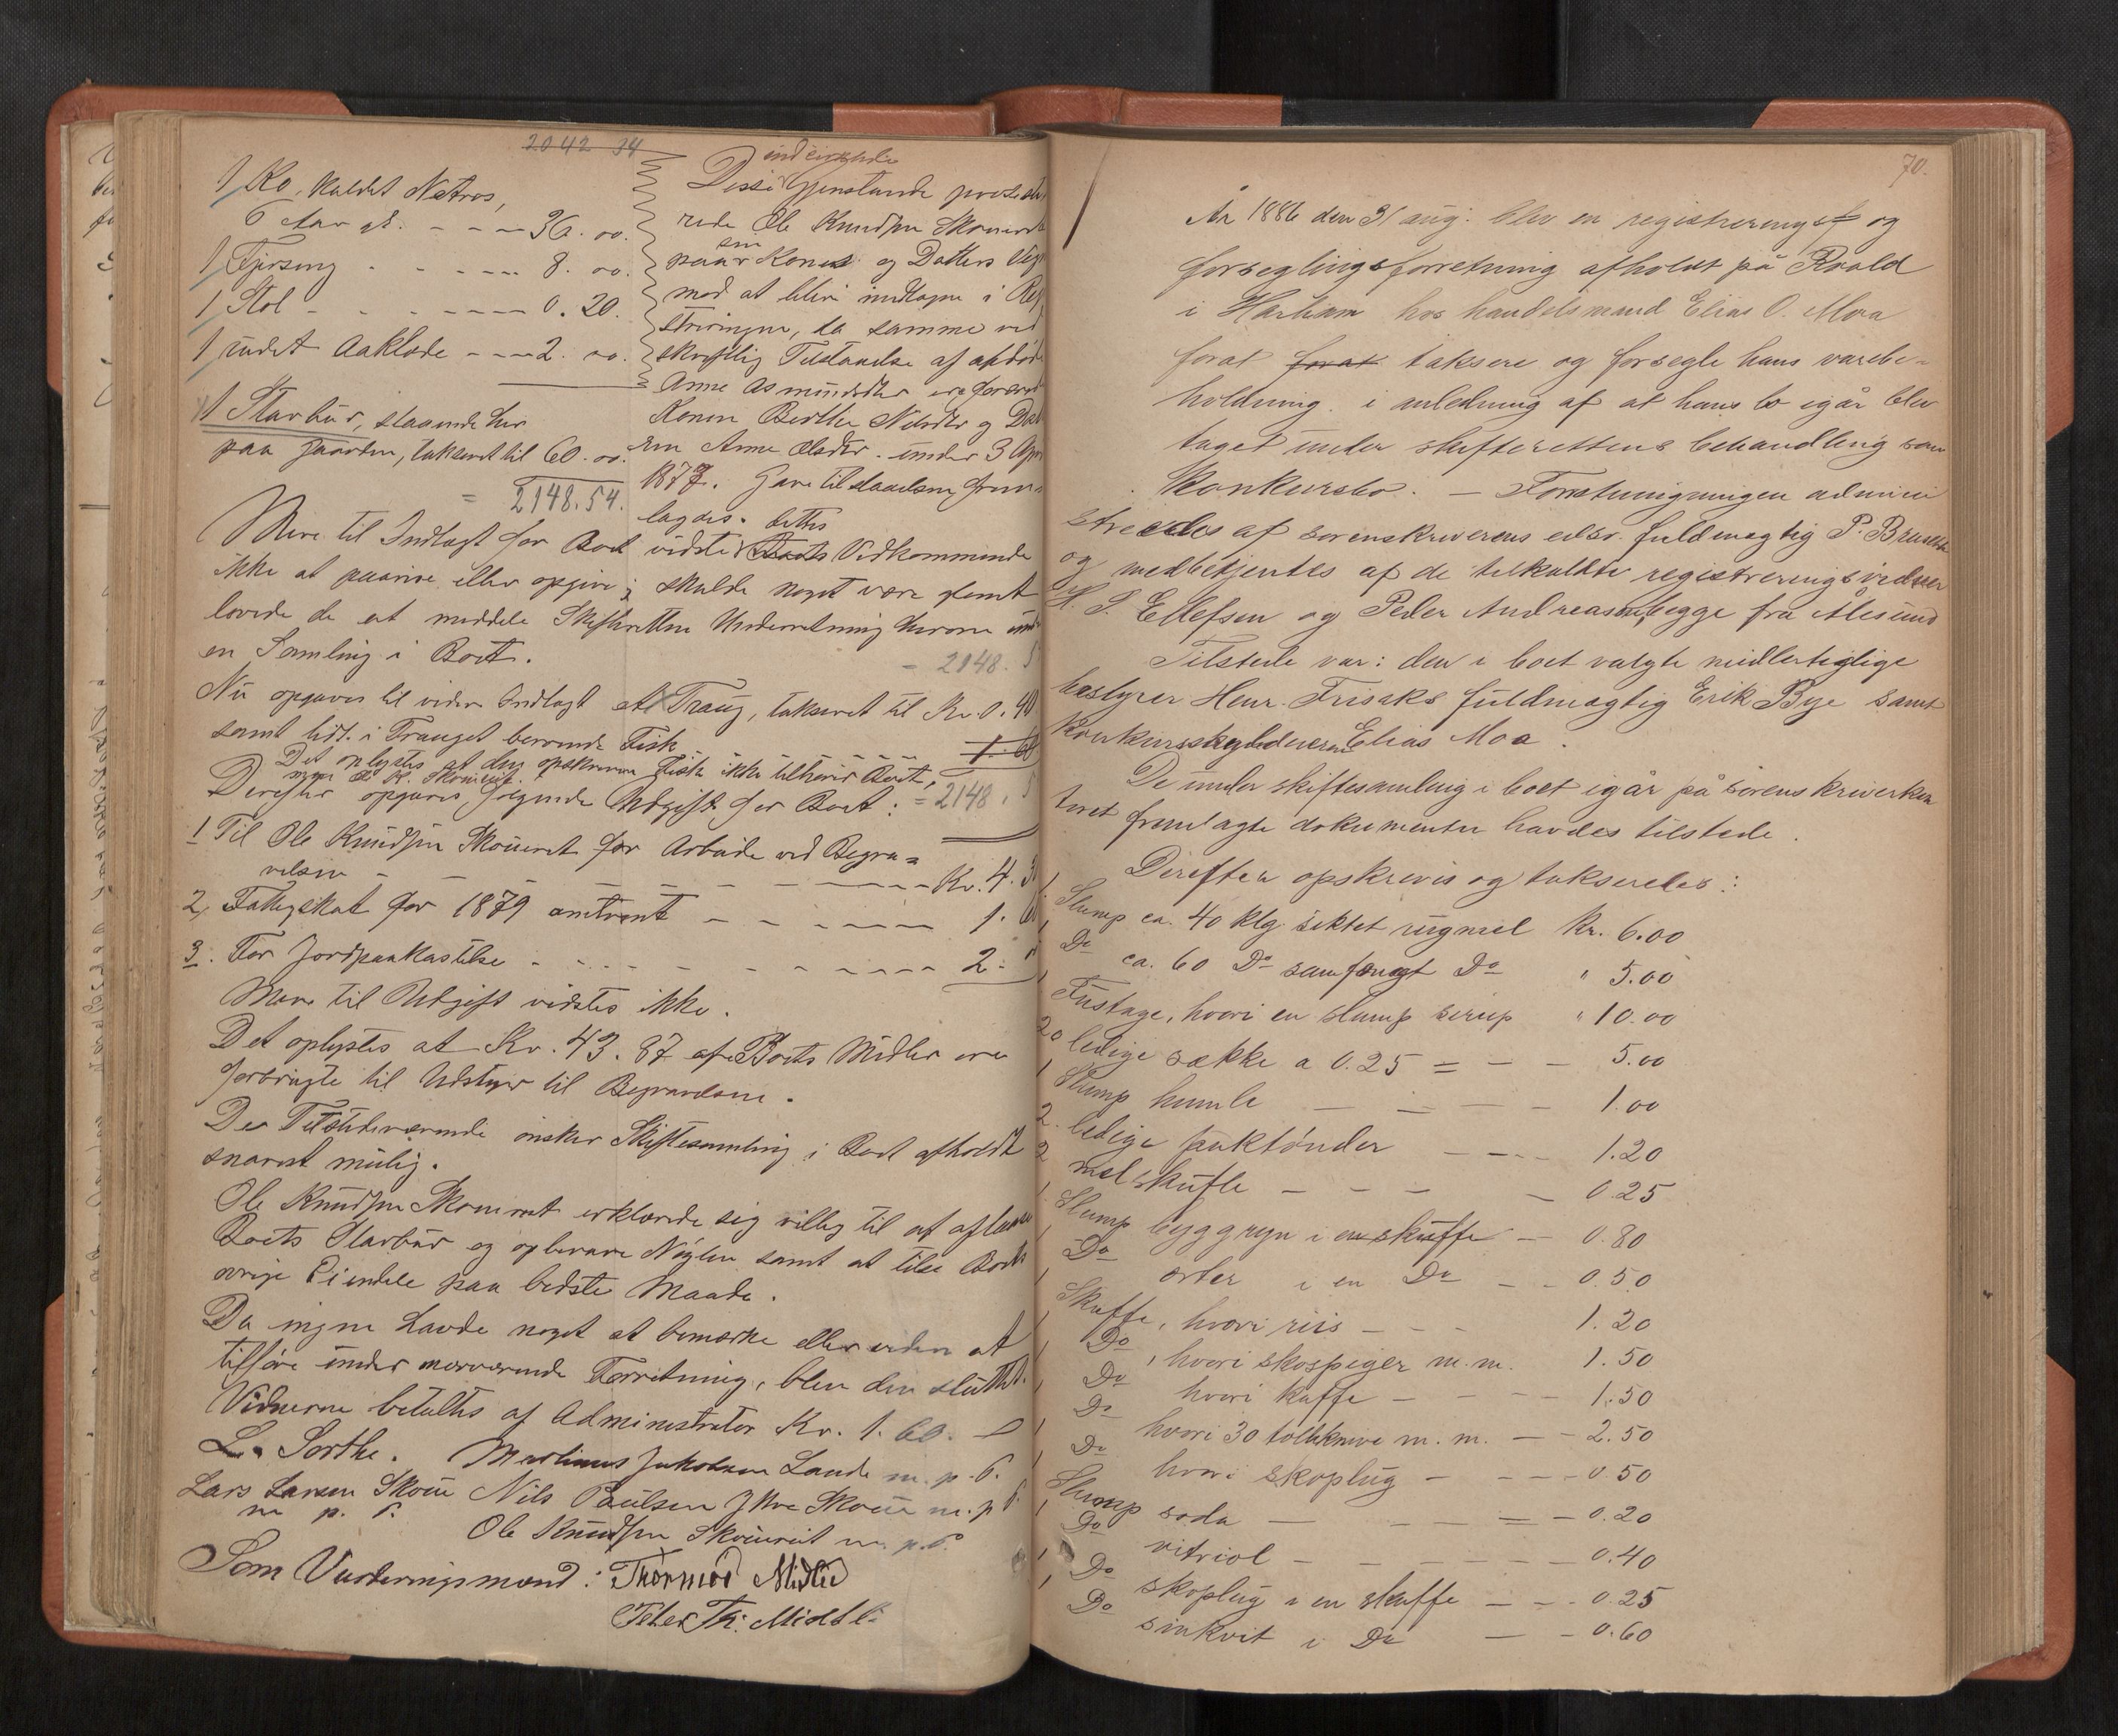 2042 34
1 Ko, kaldet Netros,
6 Aar gl. - - - 36. oo.
1 Gjorsing - - - - 8. oo.
1 Stol - - - - 0. 20.
1 rudet Aaklæde - - - 2. oo.
1 Starbür, staaende her
paa Gaarden, taksert til 60. oo.
= 2148.54.
indeirgede
Disse Gjenstande proteste
rede Ole Knudsen Skouevet
paa sin Kones og Datters Veg
mod at blive indtagne i Reg
streringen, da samme ved
skriftlig Tilstaaelse af afdøde
Anne Asmundsdtr ere foræret
Konen Berthe Nilsdtr og Dat
ren Anne Olsdtr. under 3 Apr
1877. Gavetilstaaelsen frem-
lagdes.
Mere til Indtægt for Boet vidste dettes Boets Vedkommende
ikke at paavise eller opgive; skulde noget være glemt
lovede de at meddele Skifteretten Underretning herom inden
en Samling i Boet.
= 2148. 5
Nu opgaves til videre Indtægt et Traug, takseret til Kr. 0. 40
samt lidt i Trauget beroende Fisk - - - - - 1. 60
Det oplystes at den opskrevne Fisk ikke tilhører Boet,
men O. K. Skouevet.
Derefter opgaves følgende Udgift for Boet: = 2148. 5
1 Til Ole Knudsen Skouevet for Arbeide ved Begra=
velsen - - - - - - - Kr. 4. 3
2, Fattigskat for 1879 omtrent - - - - - 1. 6
3. For Jordpaakastelse - - - - - - - 2.
Mere til Udgift vidstes ikke.
Det oplystes at Kr. 43. 87 af Boets Midler ere
forbrugte til Udstyr til Begravelsen.
De Tilstedeværende ønsker Skiftesamling i Boet afholdt
snarest mulig.
Ole Knudsen Skouevet erklærede sig villig til at aflaase
Boets Starbür og opbevare Nøglen samt at tilse Boets
øvrige Eiendele paa bedste Maade.
Da ingen havde noget at bemærke eller viden at
tilføre under nærværende Forretning, blev den sluttet.
Vidnerne betaltes af Administrator Kr. 1. 60.
L. Sorthe. Martinus Jakobsen Lande m. p. P.
Lars Larsen Skoue Nils Paulsen Ytre Skoue m. p. P.
m p. P.
Ole Knudsen Skouevet m. p. P.
Som Vurderingsmænd: Thormod Midtlie
Peter Th: Midtli
70.
År 1886 den 31 aug: blev en registrerings f og
forseglingsforretning afholdt på Roald
i Harham hos handelsmand Elias O. Moa
forat forat taksere og forsegle hans varebe=
holdning. i anledning af at hans bo igår blev
taget under skifterettens behandling som
konkursbo. — Forretningingen admini
streredes af sorenskriverens edsv. fuldmægtig P. Brunsta
og medbetjentes af de tilkaldte registreringsvidner
H. S. Ellefsen og Peder Andreasen, begge fra Ålesund
Tilstede var: den i boet valgte midlertiglige
bestyrer Henr. Frisaks fuldmægtig Erik Bye samt
konkursskyldneren Elias Moa.
De under skiftesamling i boet igår på sorenskriverkon
toret fremlagte dokumenter havdes tilstede.
Derefter opskrevis og takseredes:
1 Slump ca. 40 klg. siktet rugmel Kr. 6.00
1 Do ca. 60 Do samfængt Do " 5.00
1 Fustage, hvori en slump sirup " 10.00
20 ledige sække a 0.25 = - - 5.00
1 Slump humle - - - - 1.00
2 ledige paktønder - - - 1.20
2 melskufle - - - - 0.25
1 Slump byggryn i en skuffe - 0.80
1 Do erter i en Do - - 0.50
1 Skuffe, hvori riis - - - 1.20
1 Do, hvori skospiger m. m. 1.50
1 Do hvori kaffe - - - - 1.50
1 Do hvori 30 tolleknive m. m. - - 2.50
1 Do hvori skoplug - - - - 0.50
1 Slump soda - - - - 0.20
1 Do vitriol - - - - - - 0.40
1 Do skoplug i en skuffe - - - 0.25
1 Do sinkvit i Do - - 0.60